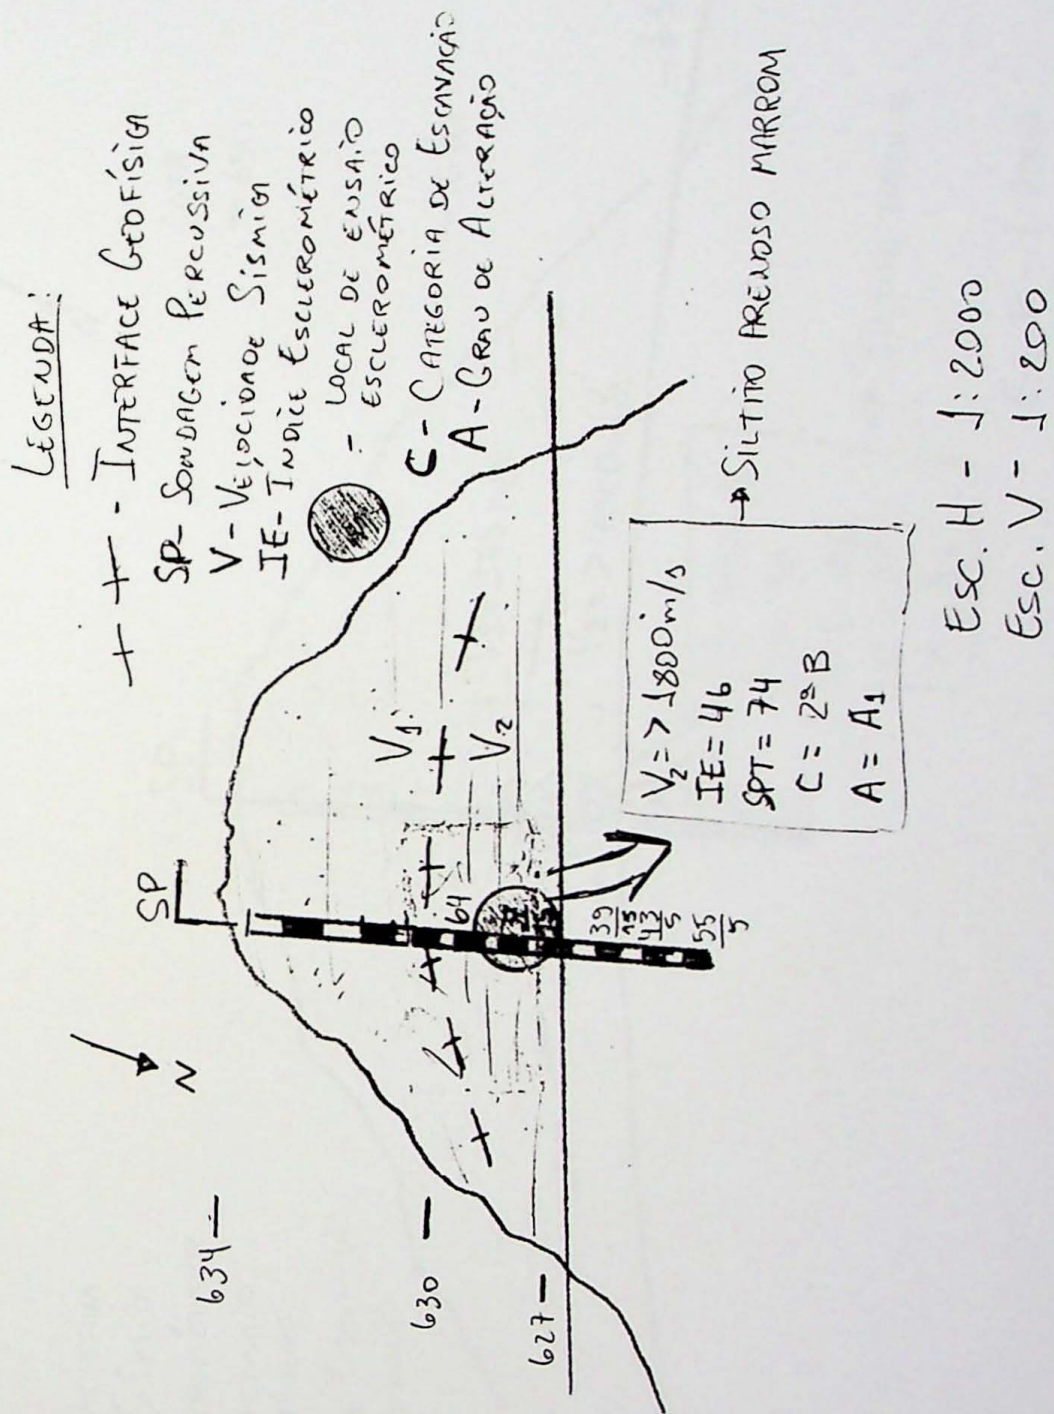 LEGENDA:
+ + - INTERFACE GEOFÍSICA
SP - SONDAGEM PERCUSSIVA
V - VELOCIDADE SÍSMICA
IE - ÍNDICE ESCLEROMÉTRICO
- LOCAL DE ENSAIO
ESCLEROMÉTRICO
C - CATEGORIA DE ESCAVAÇÃO
A - GRAU DE ALTERAÇÃO
SP
N
634
630
627
V1
V2
64
39
15
43
5
55
5
V2 = > 1800 m/s
IE = 46
SPT = 74
C = 2ª B
A = A1
→ SILTITO ARENOSO MARROM
Esc. H - 1:2000
Esc. V - 1:200